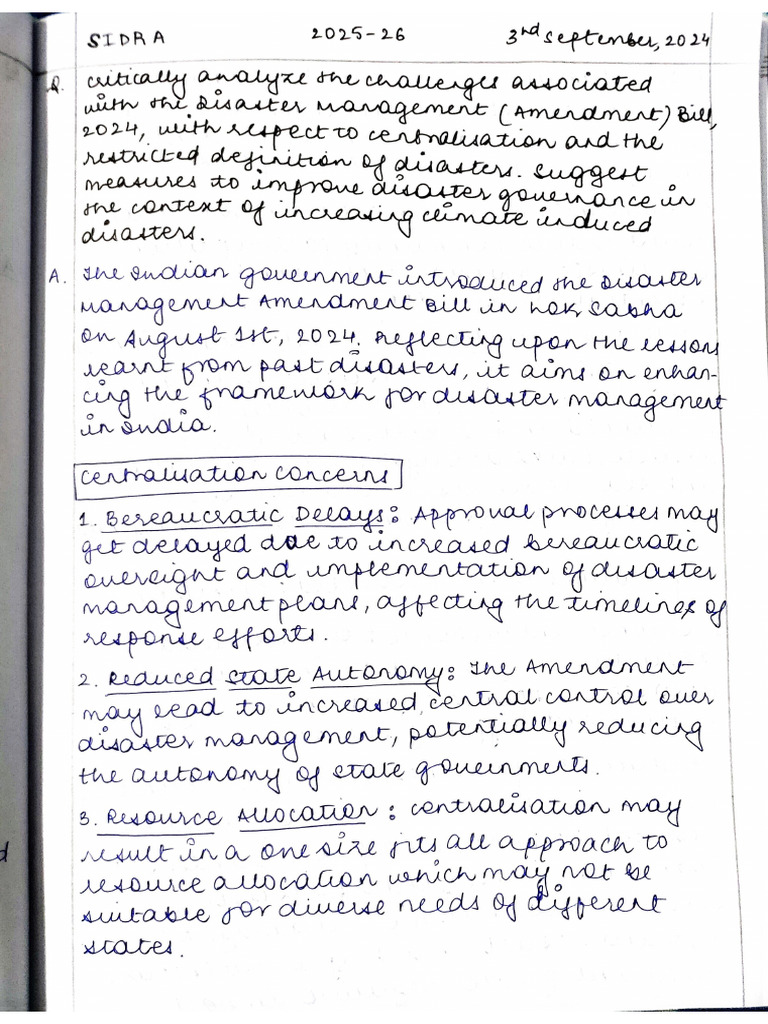 SIDRA 2025-26 3rd September, 2024
Q. Critically analyze the challenges associated
with the Disaster Management (Amendment) Bill,
2024, with respect to centralisation and the
restricted definition of disasters. Suggest
measures to improve disaster governance in
the context of increasing climate induced
disasters.
A. The Indian government introduced the Disaster
Management Amendment Bill in Lok Sabha
on August 1st, 2024. Reflecting upon the lessons
learnt from past disasters, it aims on enhan-
cing the framework for disaster management
in India.
Centralisation Concerns
1. Bereaucratic Delays: Approval processes may
get delayed due to increased bereaucratic
oversight and implementation of disaster
management plans, affecting the timelines of
response efforts.
2. Reduced State Autonomy: The Amendment
may lead to increased central control over
disaster management, potentially reducing
the autonomy of state governments.
3. Resource Allocation: Centralisation may
result in a one size fits all approach to
resource allocation which may not be
suitable for diverse needs of different
states.
d